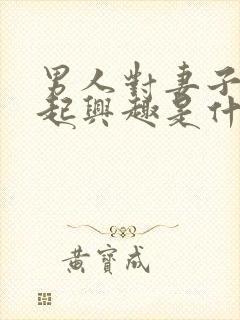 男人對妻子
起興趣是什
黃寶成